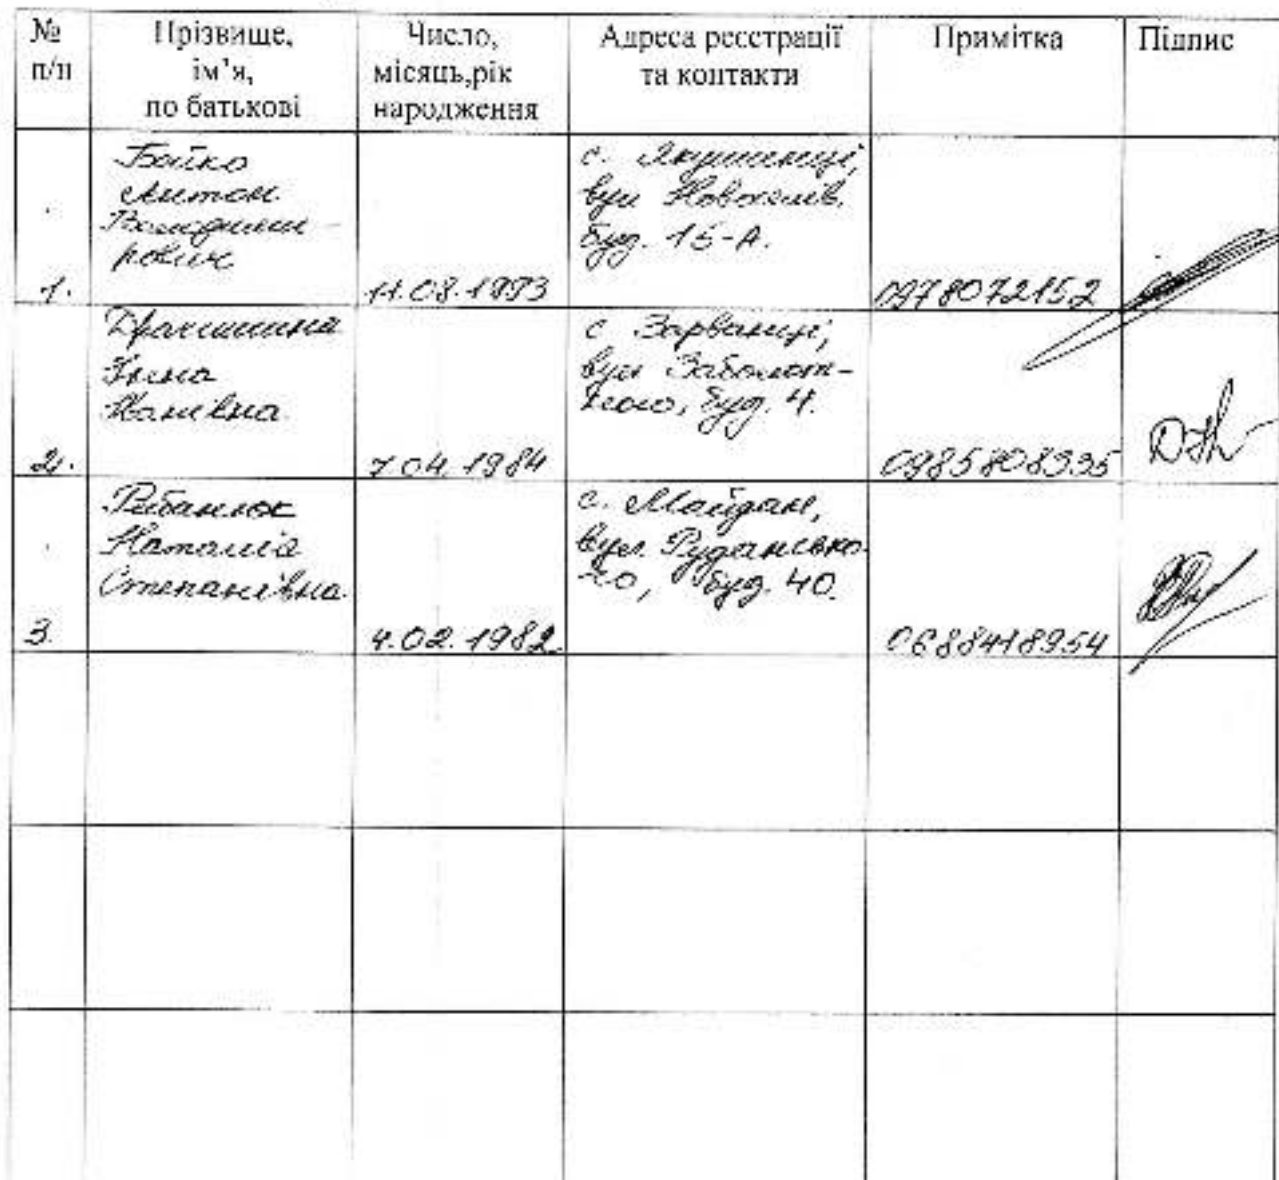 № п/п
Прізвище, ім’я, по батькові
Число, місяць,рік народження
Адреса реєстрації та контакти
Примітка
Підпис
1.
Бойко
Антон
Володими-
рович
11.08.1993
с. Якушинці,
вул Новокиїв.
буд. 15-А.
0978072152
2.
Інна
Іванівна
7.04.1984
с Зарванці,
вул Заболот-
ного, буд. 4.
0985808935
3.
Рибанюк
Наталія
Степанівна
4.02.1982
с. Майдан,
вул. Рудансько-
го, буд. 40.
0688418954